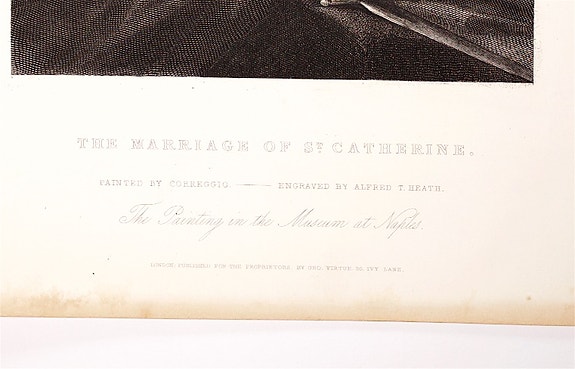 THE MARRIAGE OF ST CATHERINE.
PAINTED BY CORREGGIO. —— ENGRAVED BY ALFRED T. HEATH.
The Painting in the Museum at Naples.
LONDON, PUBLISHED FOR THE PROPRIETORS, BY GEO. VIRTUE, 26, IVY LANE.